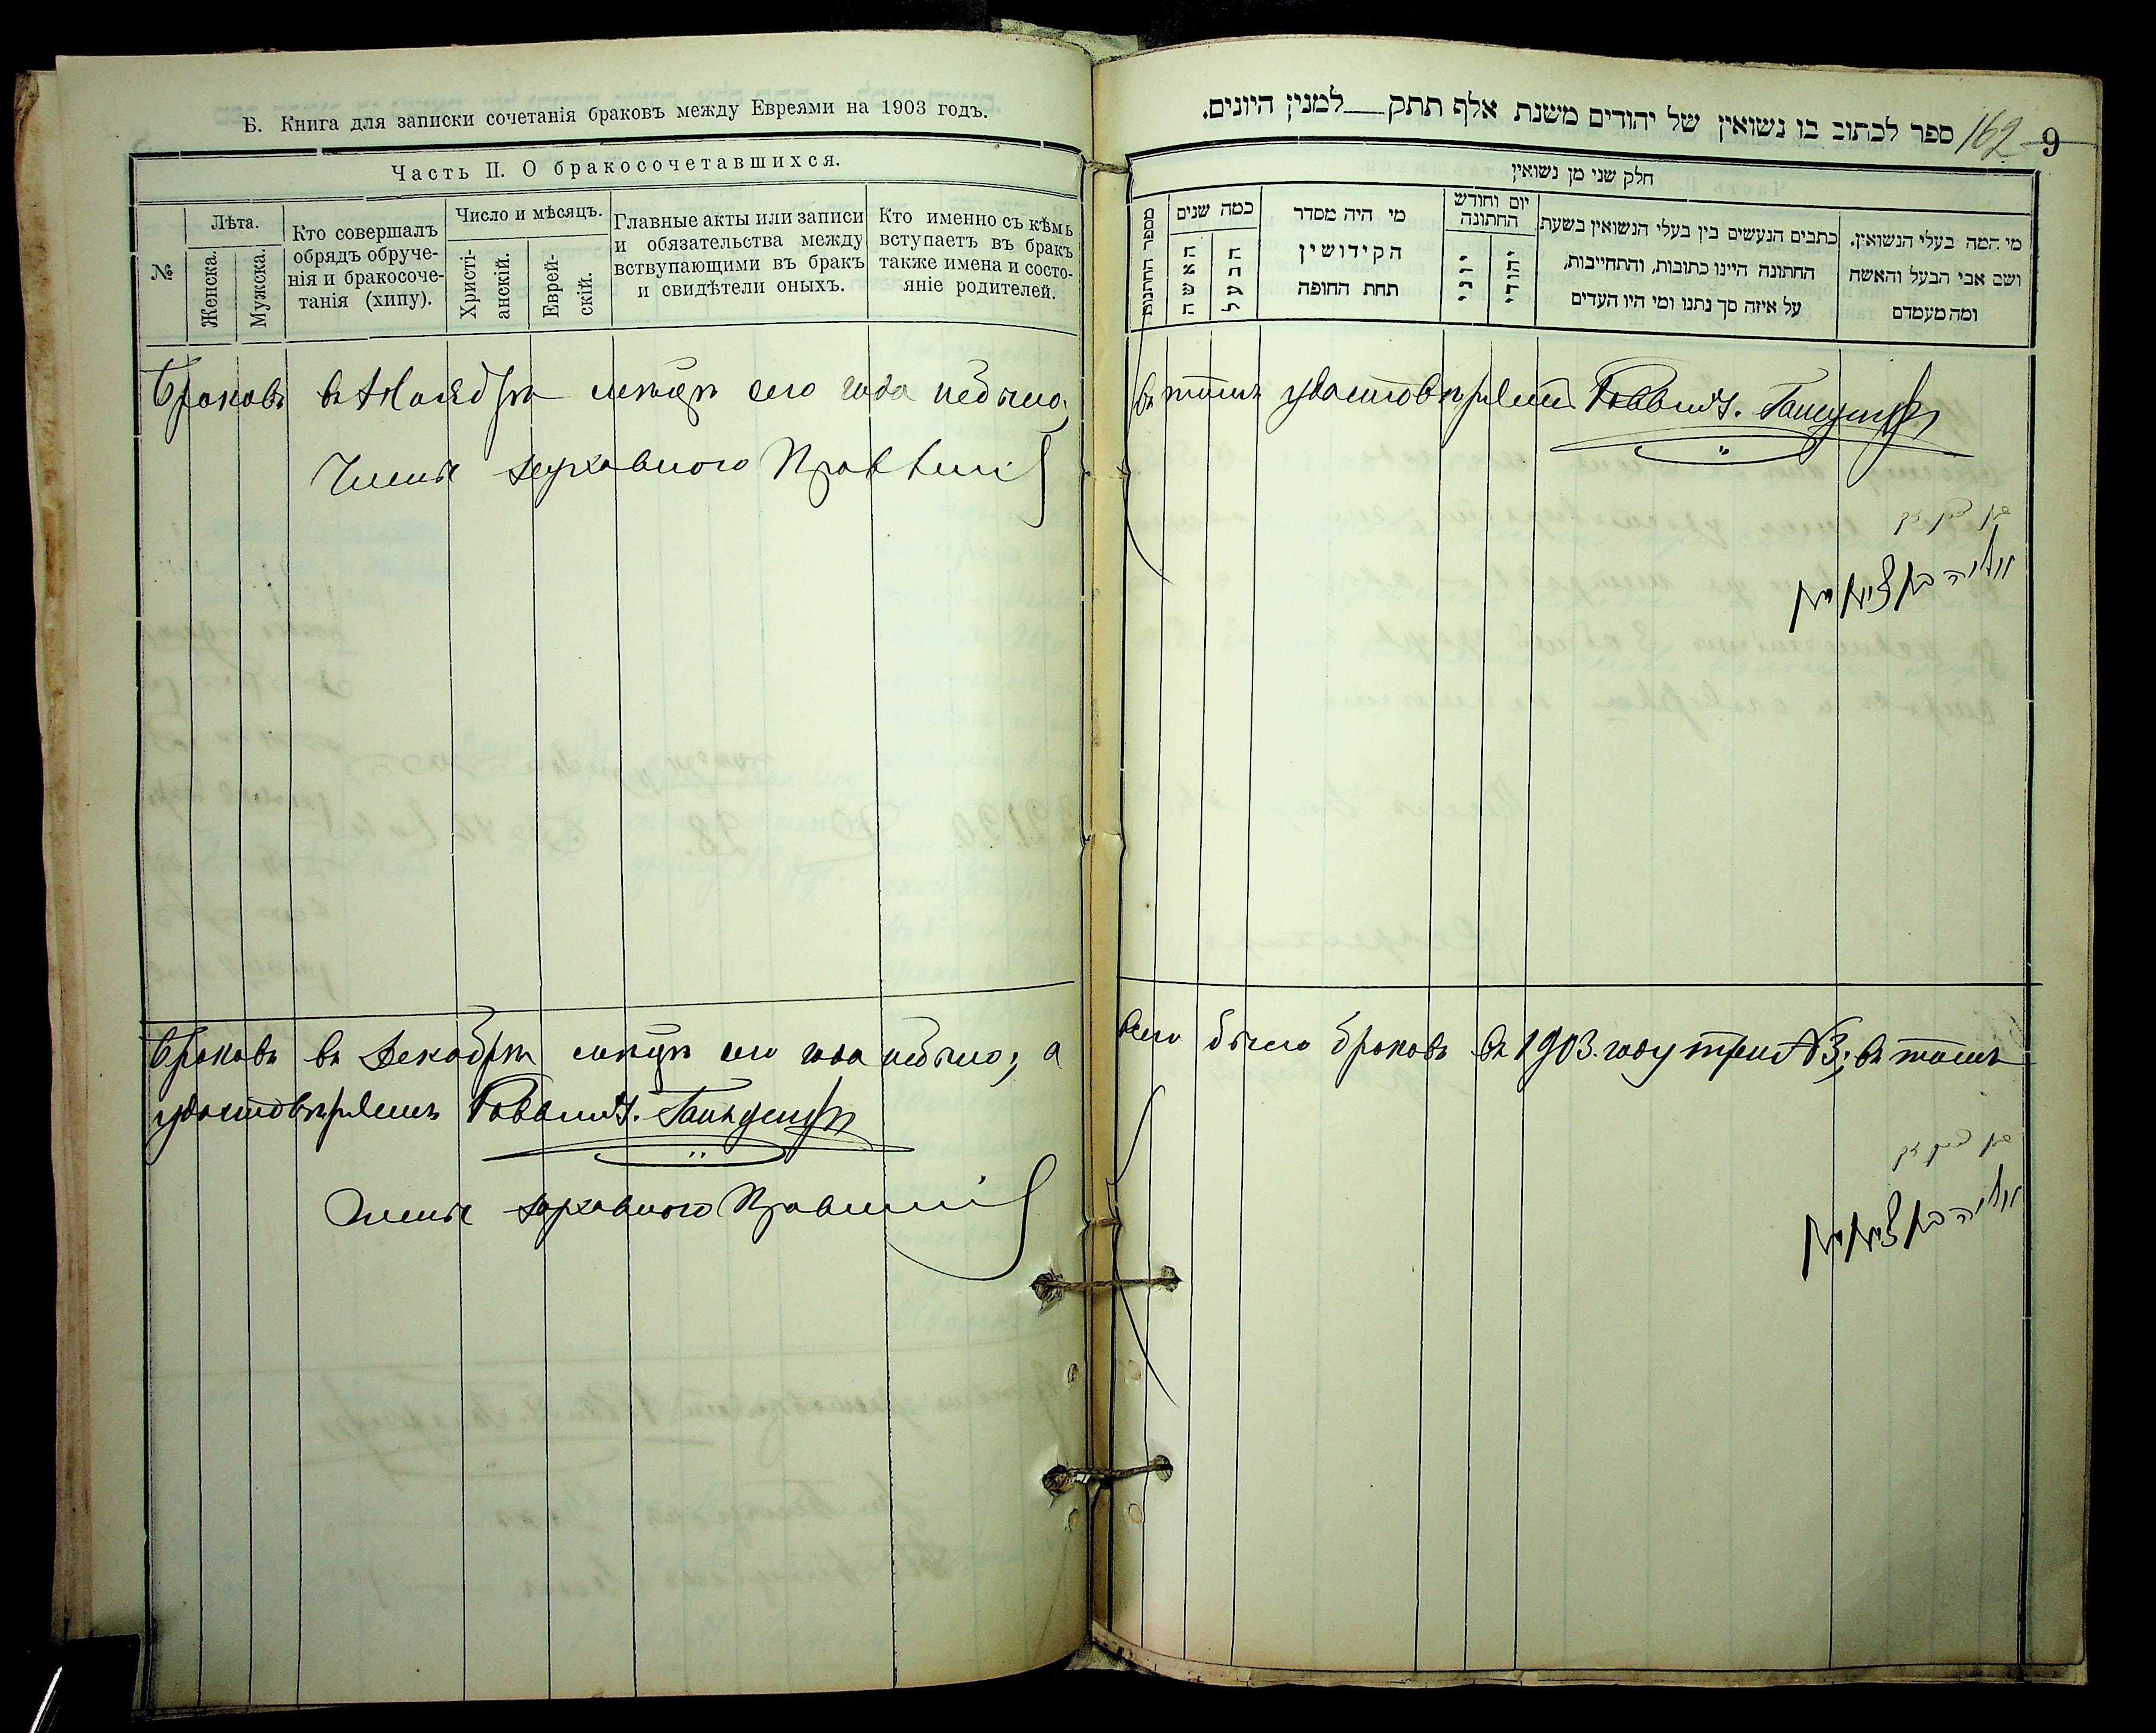 Б. Книга для записки сочетанія браковъ между Евреями на 1903 годъ.
Часть II. О бракосочетавшихся.
№
Лѣта.
Женска.
Мужска.
Кто совершалъ
обрядъ обруче-
нія и бракосоче-
танія (хипу).
Число и мѣсяцъ.
Христі-
анскій.
Еврей-
скій.
Главные акты или записи
и обязательства между
вствупающими въ бракъ
и свидѣтели оныхъ.
Кто именно съ кѣмъ
вступаетъ въ бракъ
также имена и состо-
яніе родителей.
Браковъ въ Ноябрѣ мѣсяцѣ сего года небыло,
Членъ духовнаго Правленія
Браковъ въ Декабрѣ мѣсяцѣ сего года небыло, а
удостовѣряемъ Раввинъ.
Членъ духовнаго Правленія
ספר לכתוב בו נשואין של יהודים משנת אלף תתק___למנין היונים.
162
9
חלק שני מן נשואין
מספר החתנות
כמה שנים
האשה
הבעל
מי היה מסדר
הקידושין
תחת החופה
יום וחודש
החתונה
יוני
יהודי
כתבים הנעשים בין בעלי הנשואין בשעת
החתונה היינו כתובות, והתחייבות,
על איזה סך נתנו ומי היו העדים
מי המה בעלי הנשואין.
ושם אבי הבעל והאשה
ומה מעמדם
въ томъ удостовѣряетъ Раввинъ.
всего было браковъ въ 1903. году три №3; въ томъ